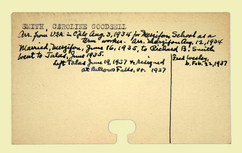 SMITH, CAROLINE GOODSELL
Arr. from USA in Cple Aug. 3, 1934 for Merzifon School as a
term worker. Arr. Merzifon Aug. 12, 1934.
Married, Merzifon, June 16, 1935, to Richard B. Smith
Went to Talas, June 1935.
Left Talas June 19, 1937 & resigned
at Bellows Falls, Vt. 1937
Fred Wesley,
b. Feb. 22, 1937